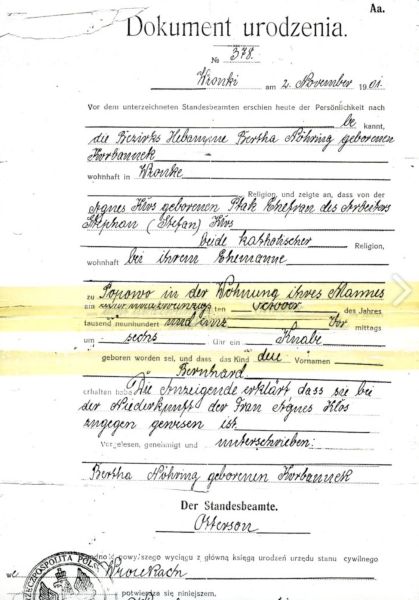 Aa.
Dokument urodzenia.
№ 378.
Wronki am 2. November 1901
Vor dem unterzeichneten Standesbeamten erschien heute der Persönlichkeit nach
be kannt,
die Bezirks Hebamme Bertha Nöhring geborenen
Korbanneck
wohnhaft in Wronke
Religion, und zeigte an, dass von der
Agnes Klos geborenen Ptak Ehefrau des Arbeiters
Stephan (Stefan) Klos
beide katholischer Religion,
wohnhaft bei ihrem Ehemanne
zu Popowo in der Wohnung ihres Mannes
am ten October des Jahres
tausend neunhundert und eins Vor mittags
um sechs Uhr ein Knabe
geboren worden sei, und dass das Kind den Vornamen
Bernhard
erhalten habe Die Anzeigende erklärt dass sie bei
der Niederkunft der Frau Agnes Klos
zugegen gewesen ist
Vorgelesen, genehmigt und unterschrieben:
Bertha Nöhring geborenen Korbanneck
Der Standesbeamte.
Otterson
powyższego wyciągu z główną księgą urodzeń urzędu stanu cywilnego
we Wronkach
potwierdza się niniejszem.
RZECZPOSPOLITA POLS